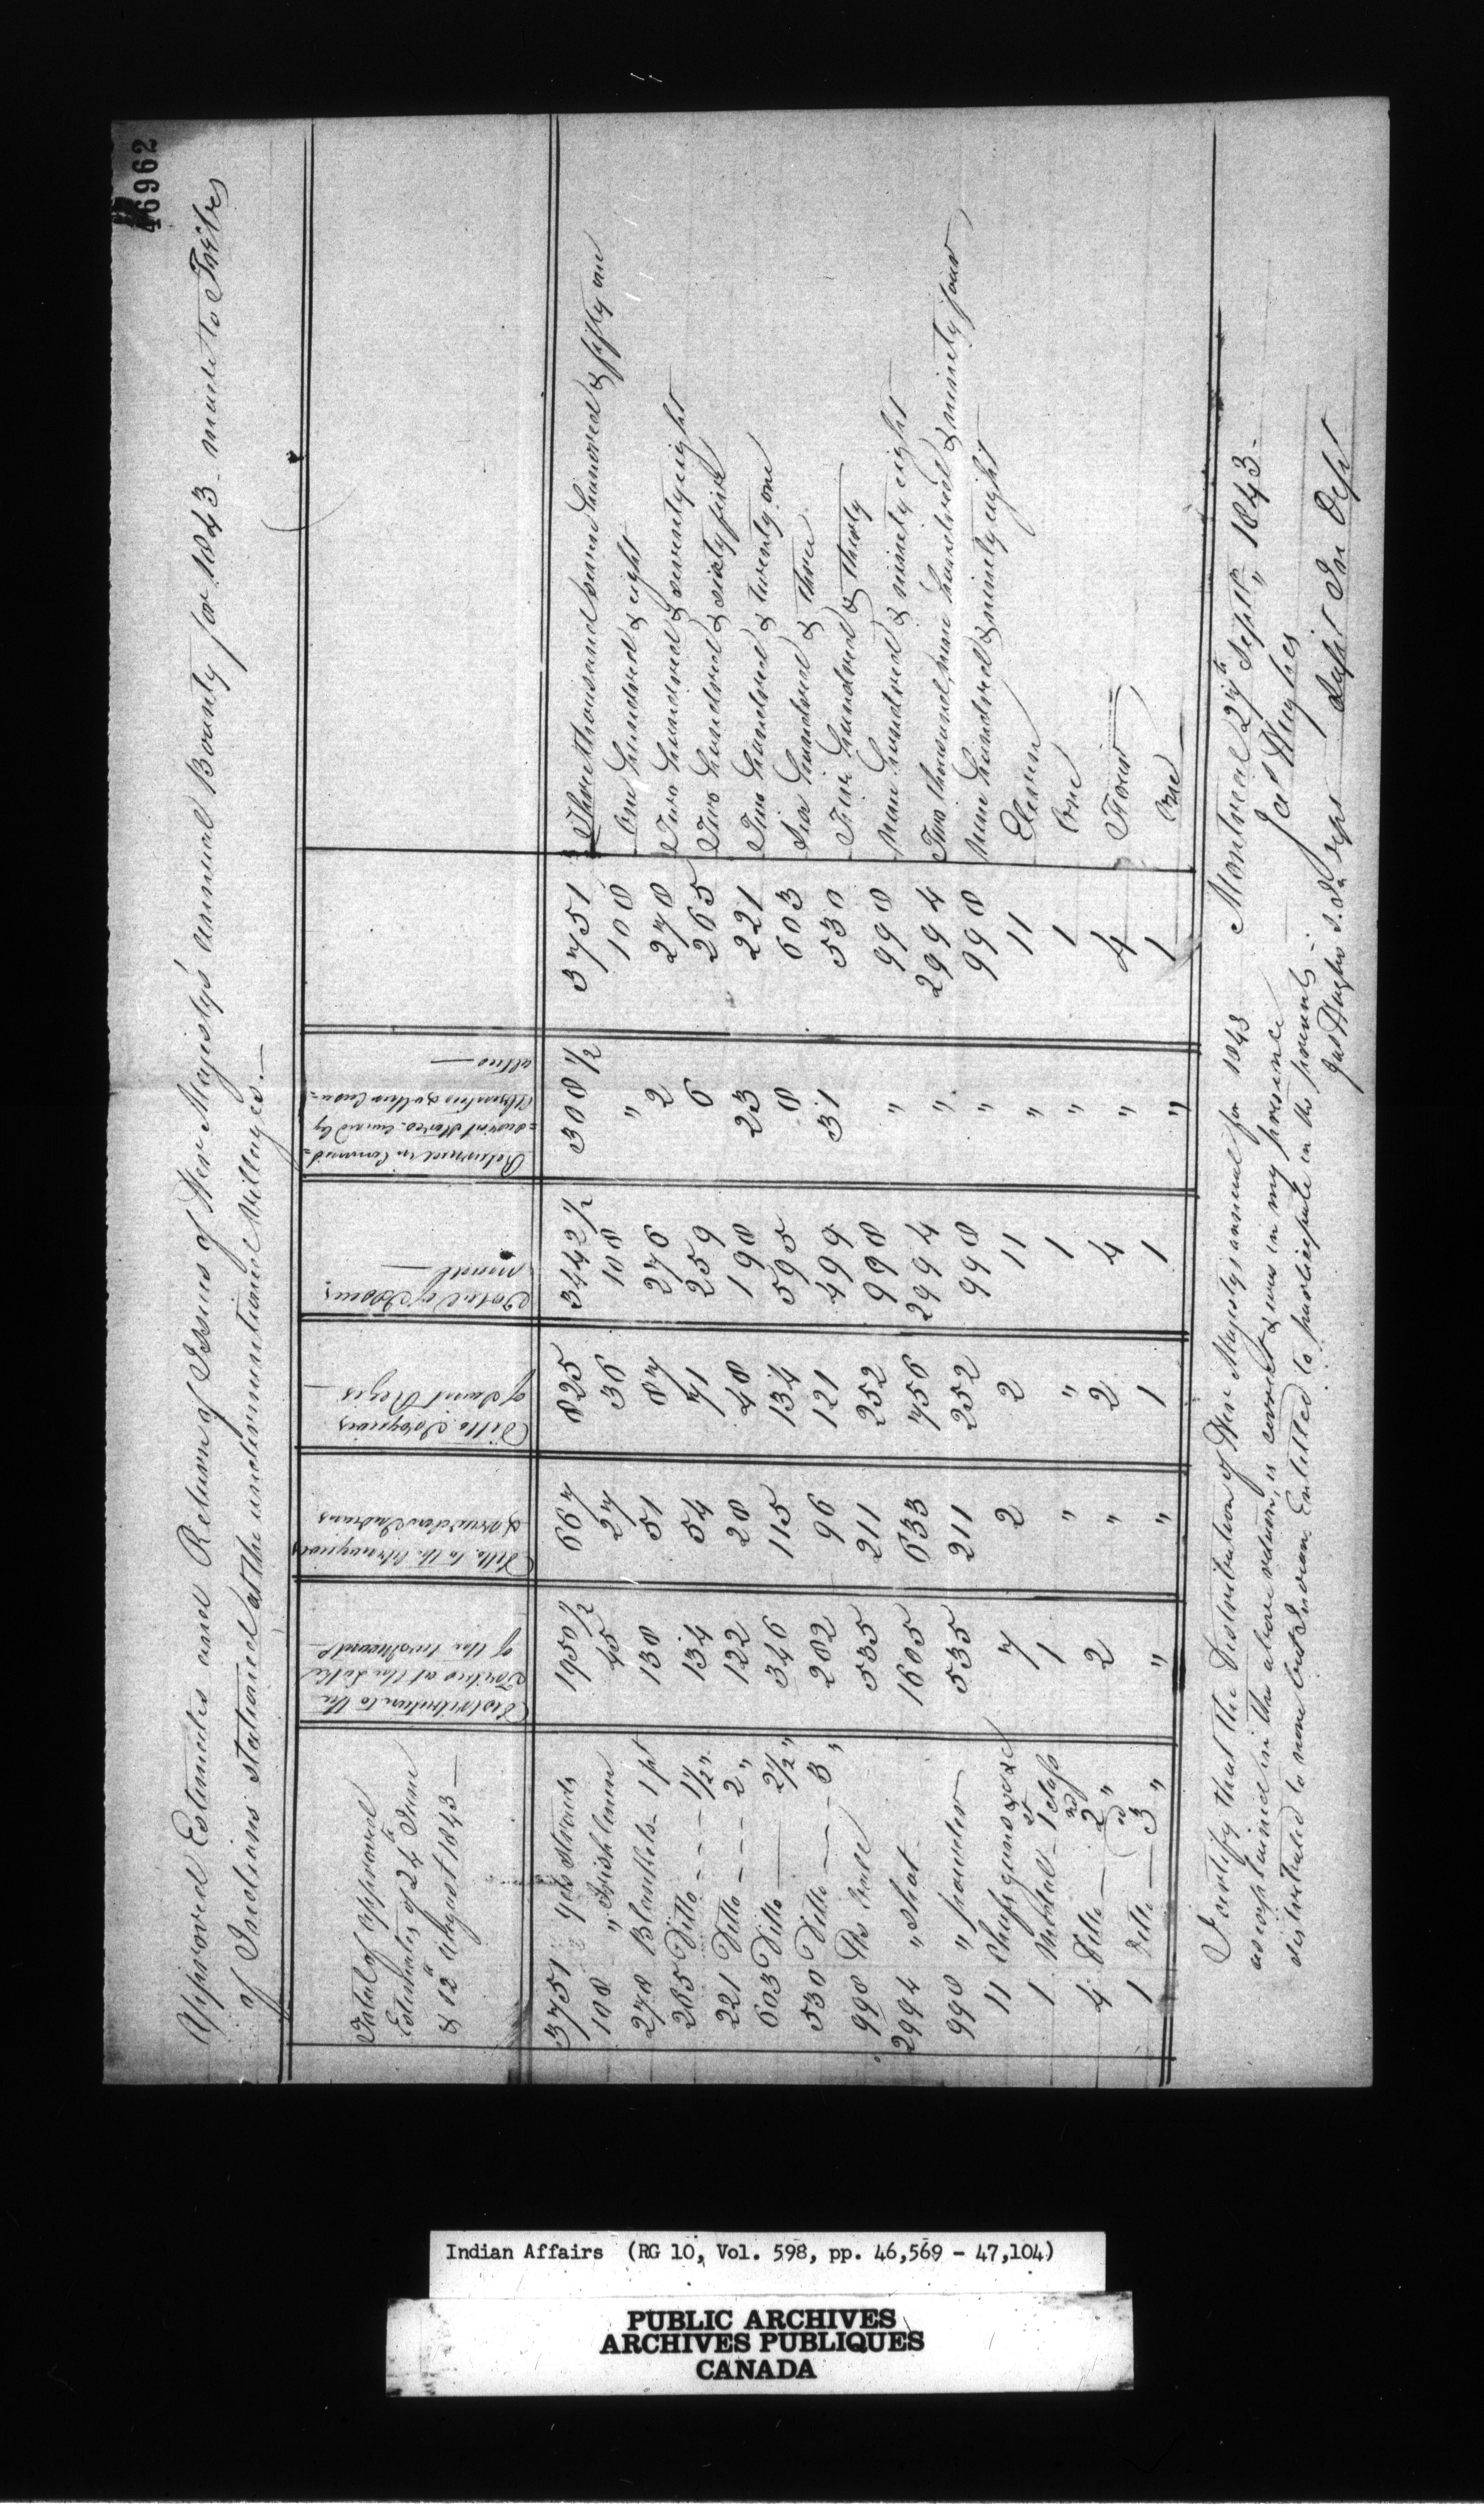 46962
Approved Estimates and Return of Issues of Her Majesty's annual Bounty for 1843 made to Tribes
of Indians stationed at the undermentioned Villages.—
Total of approved Estimates of 24th June & 12th August 1843— | Distribution to the Parties at the Lake of the two Mount— | Ditto to the Algonquins | Ditto Iroquois of Saint Regis— | Total of Issues made— | Returned in Commissariat Stores caused by Absentees & other Casualties—
3751 yds Strouds | 1950 1/2 | 667 | 825 | 3442 1/2 | 308 1/2 | 3751 | Three thousand seven hundred & fifty one
108 " Irish linen | 45 | 27 | 36 | 108 | " | 108 | One hundred & eight
278 Blankets 1 pt | 138 | 51 | 87 | 276 | 2 | 278 | Two hundred & seventy eight
265 Ditto --- 1 1/2 " | 134 | 54 | 71 | 259 | 6 | 265 | Two hundred & sixty five
221 Ditto --- 2 " | 122 | 28 | 48 | 198 | 23 | 221 | Two hundred & twenty one
603 Ditto — 2 1/2 " | 346 | 115 | 134 | 595 | 8 | 603 | Six hundred & three
530 Ditto — 3 " | 282 | 96 | 121 | 499 | 31 | 530 | Five hundred & thirty
998 lbs ball | 535 | 211 | 252 | 998 | " | 998 | Nine hundred & ninety eight
2994 " Shot | 1605 | 633 | 756 | 2994 | " | 2994 | Two thousand nine hundred & ninety four
998 " powder | 535 | 211 | 252 | 998 | " | 998 | Nine hundred & ninety eight
11 Chiefs guns | 7 | 2 | 2 | 11 | " | 11 | Eleven
1 Medal — 1st class | 1 | " | " | 1 | " | 1 | One
4 Ditto — 2nd " | 2 | " | 2 | 4 | " | 4 | Four
1 Ditto — 3rd " | " | " | 1 | 1 | " | 1 | One
I certify that the Distribution of Her Majesty's annual for 1843
as explained in the above return, is correct & was in my presence
distributed to none but Indians Entitled to participate in the presents.—
Jas Hughes S. In Dept
Montreal 27th Septr 1843—
Jas Hughes
Supt In Dept
Indian Affairs (RG 10, Vol. 598, pp. 46,569 - 47,104)
PUBLIC ARCHIVES
ARCHIVES PUBLIQUES
CANADA